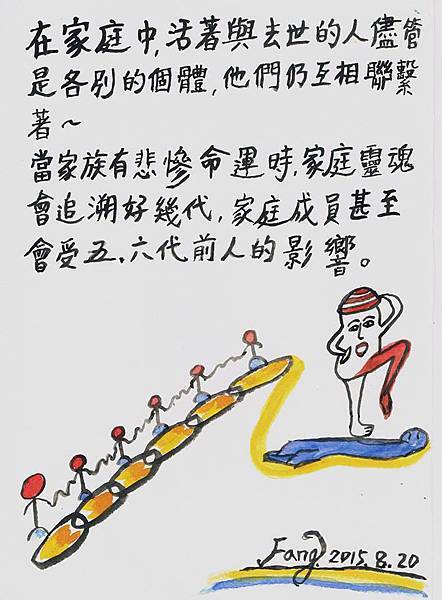 在家庭中,活著與去世的人儘管
是各別的個體,他們仍互相聯繫
著~
當家族有悲慘命運時,家庭靈魂
會追溯好幾代,家庭成員甚至
會受五、六代前人的影響。
Fang 2015.8.20